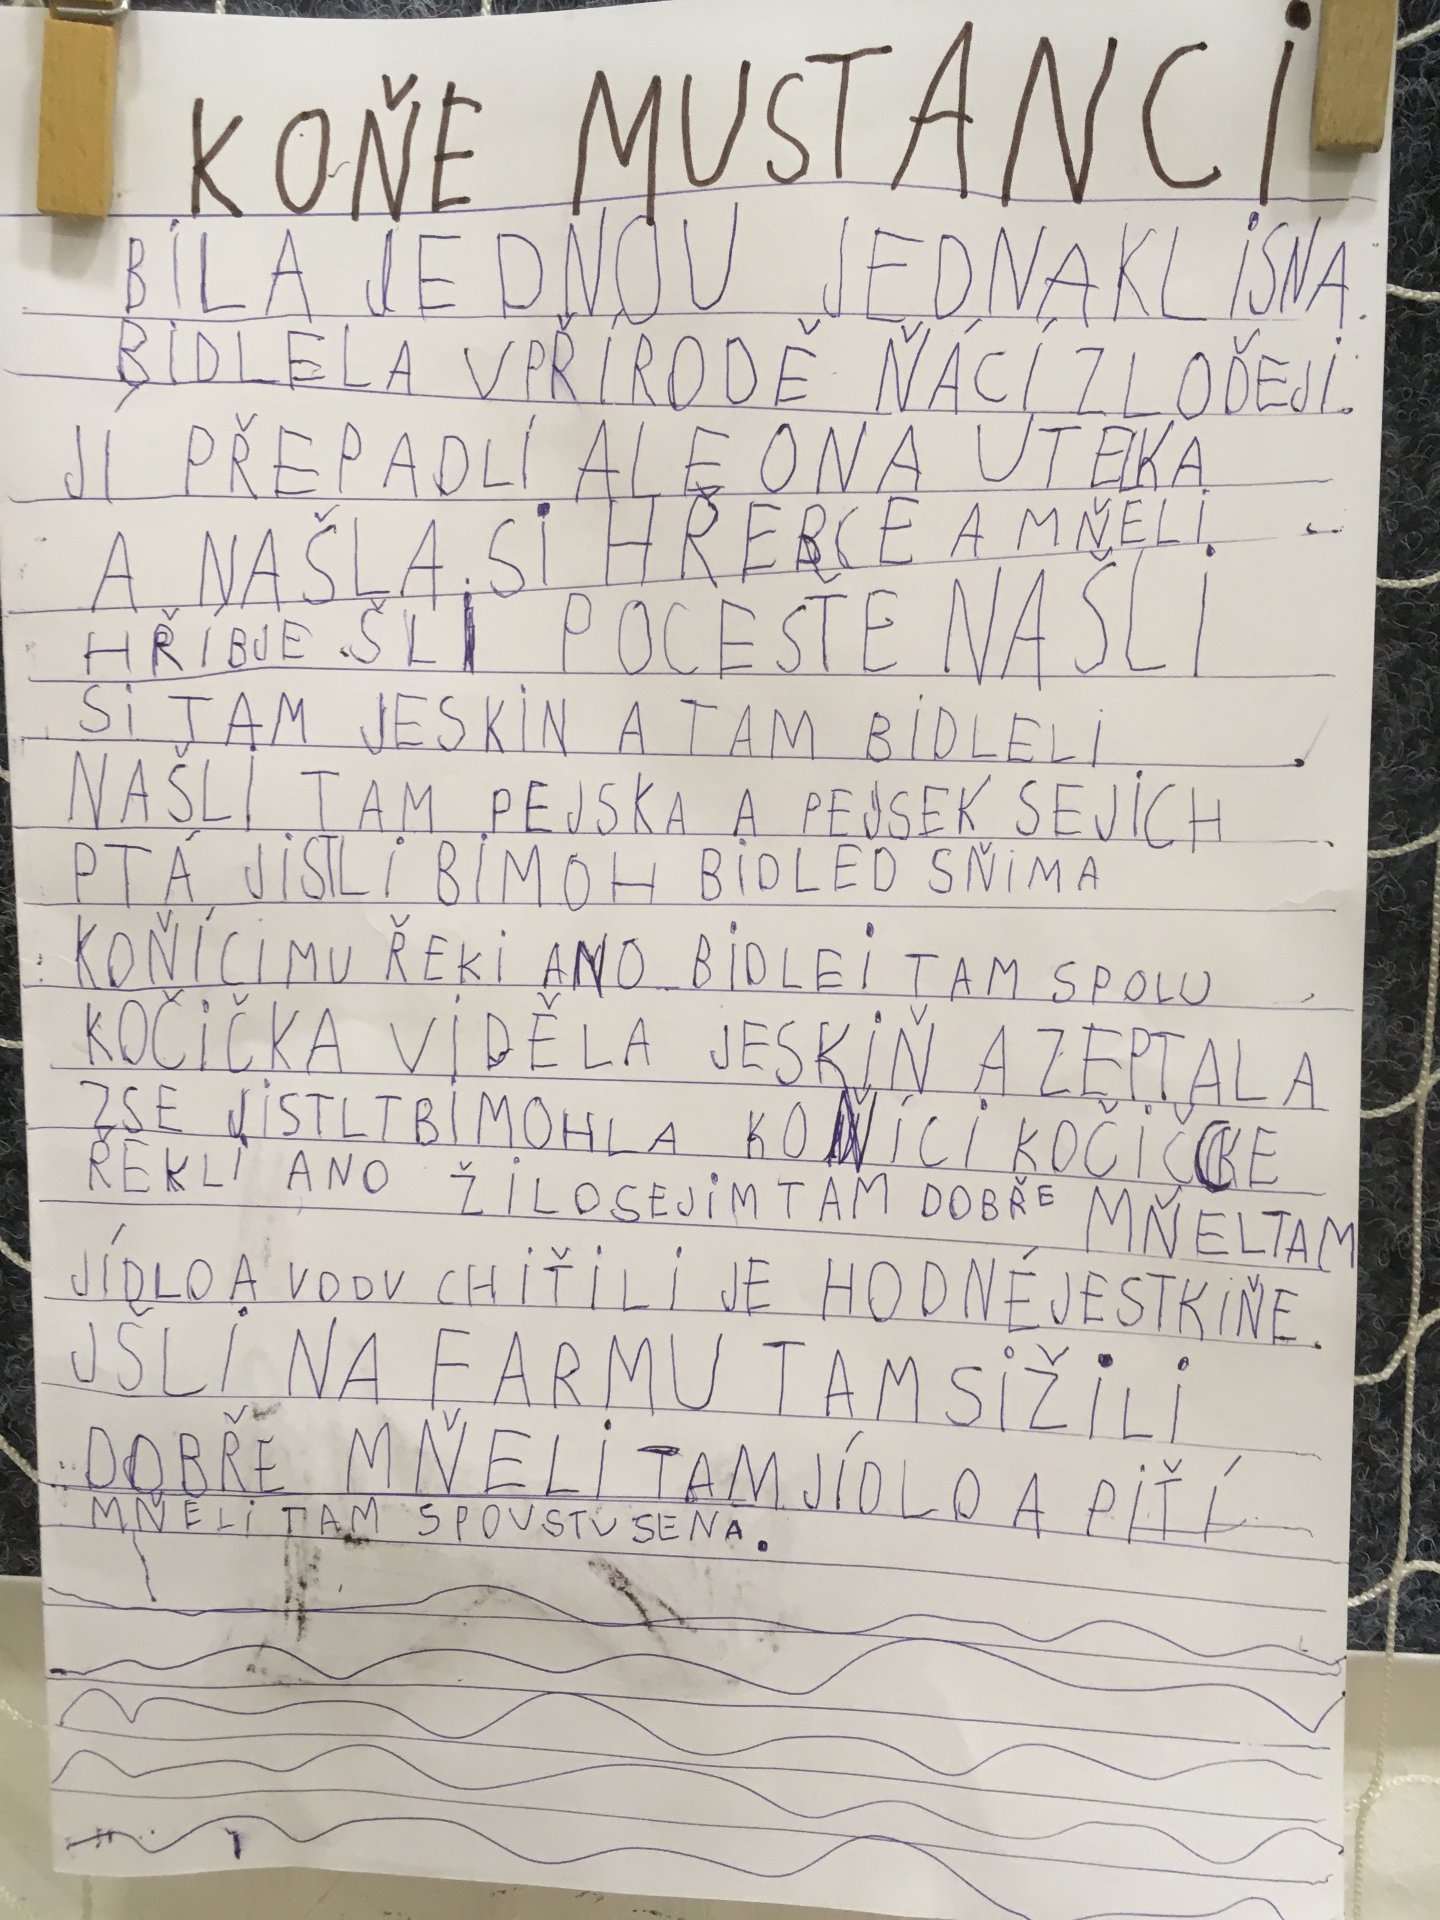 KOŇE MUSTANCI
BILA JEDNOU JEDNAKLISNA.
BIDLELA VPŘÍRODĚ ŇÁCÍ ZLOĎEJI.
JÍ PŘEPADLI ALE ONA UTEKA
A NAŠLA SI HŘEBCE A MŇELI
HŘÍBJE ŠLI POCESTĚ NAŠLI
SI TAM JESKIN A TAM BIDLELI.
NAŠLI TAM PEJSKA A PEJSEK SEJICH
PTÁ JISTLI BIMOH BIDLED SŇIMA
KOŇÍCIMU ŘEKI ANO BIDLEI TAM SPOLU
KOČIČKA VIDĚLA JESKIŇ A ZEPTALA
ZSE JISTLTBIMOHLA KOŇÍCI KOČIČKE
ŘEKLI ANO ŽILOSEJIM TAM DOBŘE MŇELTAM
JÍDLO A VODU CHIŤILI JE HODNÉJESTKIŇE.
JŠLI NA FARMU TAMSIŽILI
DOBŘE MŇELI TAMJÍDLO A PIŤÍ
MŇELI TAM SPOUSTUSENA.